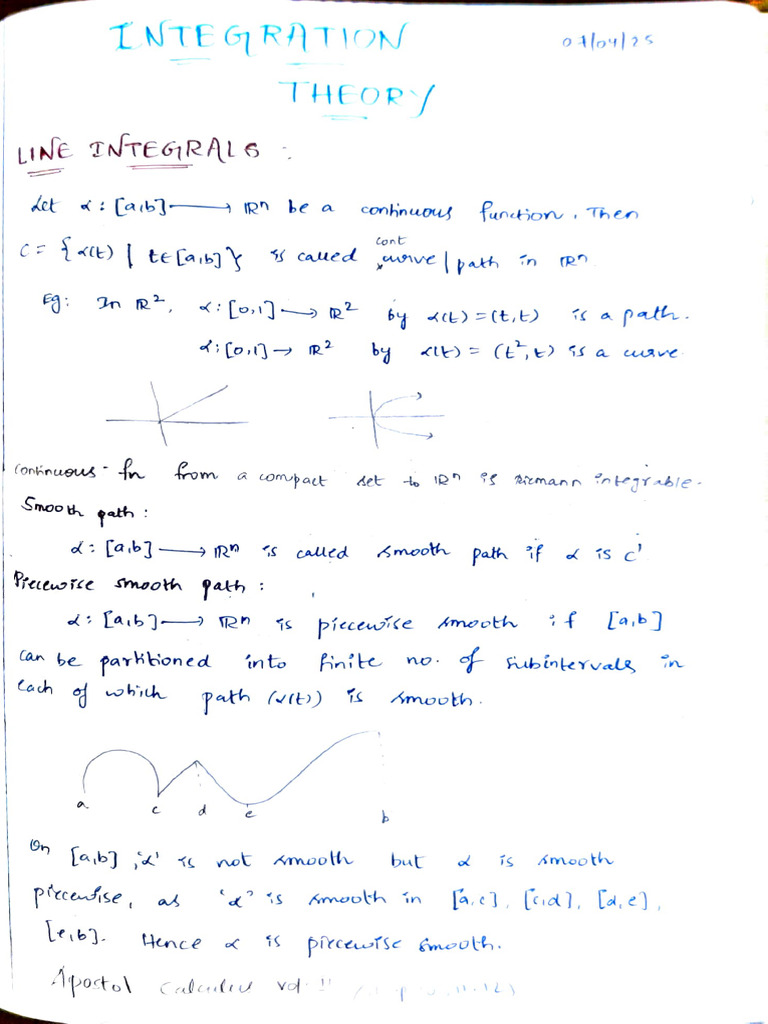 INTEGRATION 07/04/25
THEORY
LINE INTEGRALS :
Let α : [a,b] ⟶ ℝⁿ be a continuous function. Then
C = {α(t) | t∈[a,b]} is called cont curve | path in ℝⁿ
Eg: In ℝ², α : [0,1] ⟶ ℝ² by α(t) = (t,t) is a path.
α : [0,1] → ℝ² by α(t) = (t²,t) is a curve
continuous fn from a compact set to ℝⁿ is Riemann integrable.
Smooth path :
α : [a,b] ⟶ ℝⁿ is called smooth path if α is C'
Piecewise smooth path :
α : [a,b] ⟶ ℝⁿ is piecewise smooth if [a,b]
can be partitioned into finite no. of subintervals in
each of which path (α(t)) is smooth.
a c d e b
On [a,b], 'α' is not smooth but α is smooth
piecewise, as 'α' is smooth in [a,c], [c,d], [d,e],
[e,b]. Hence α is piecewise smooth.
Apostol Calculus vol. II